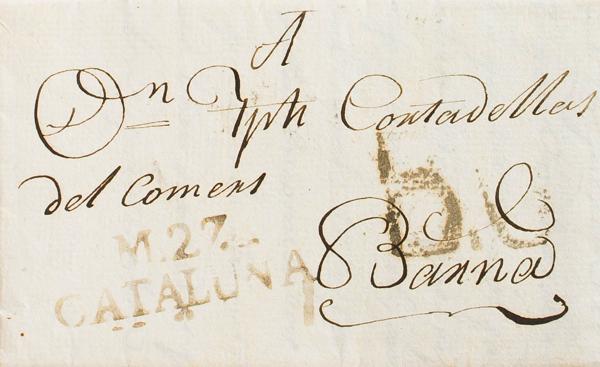 A
Dn Jph Contadellas
del Comers
Barna
M.27.
CATALUÑA